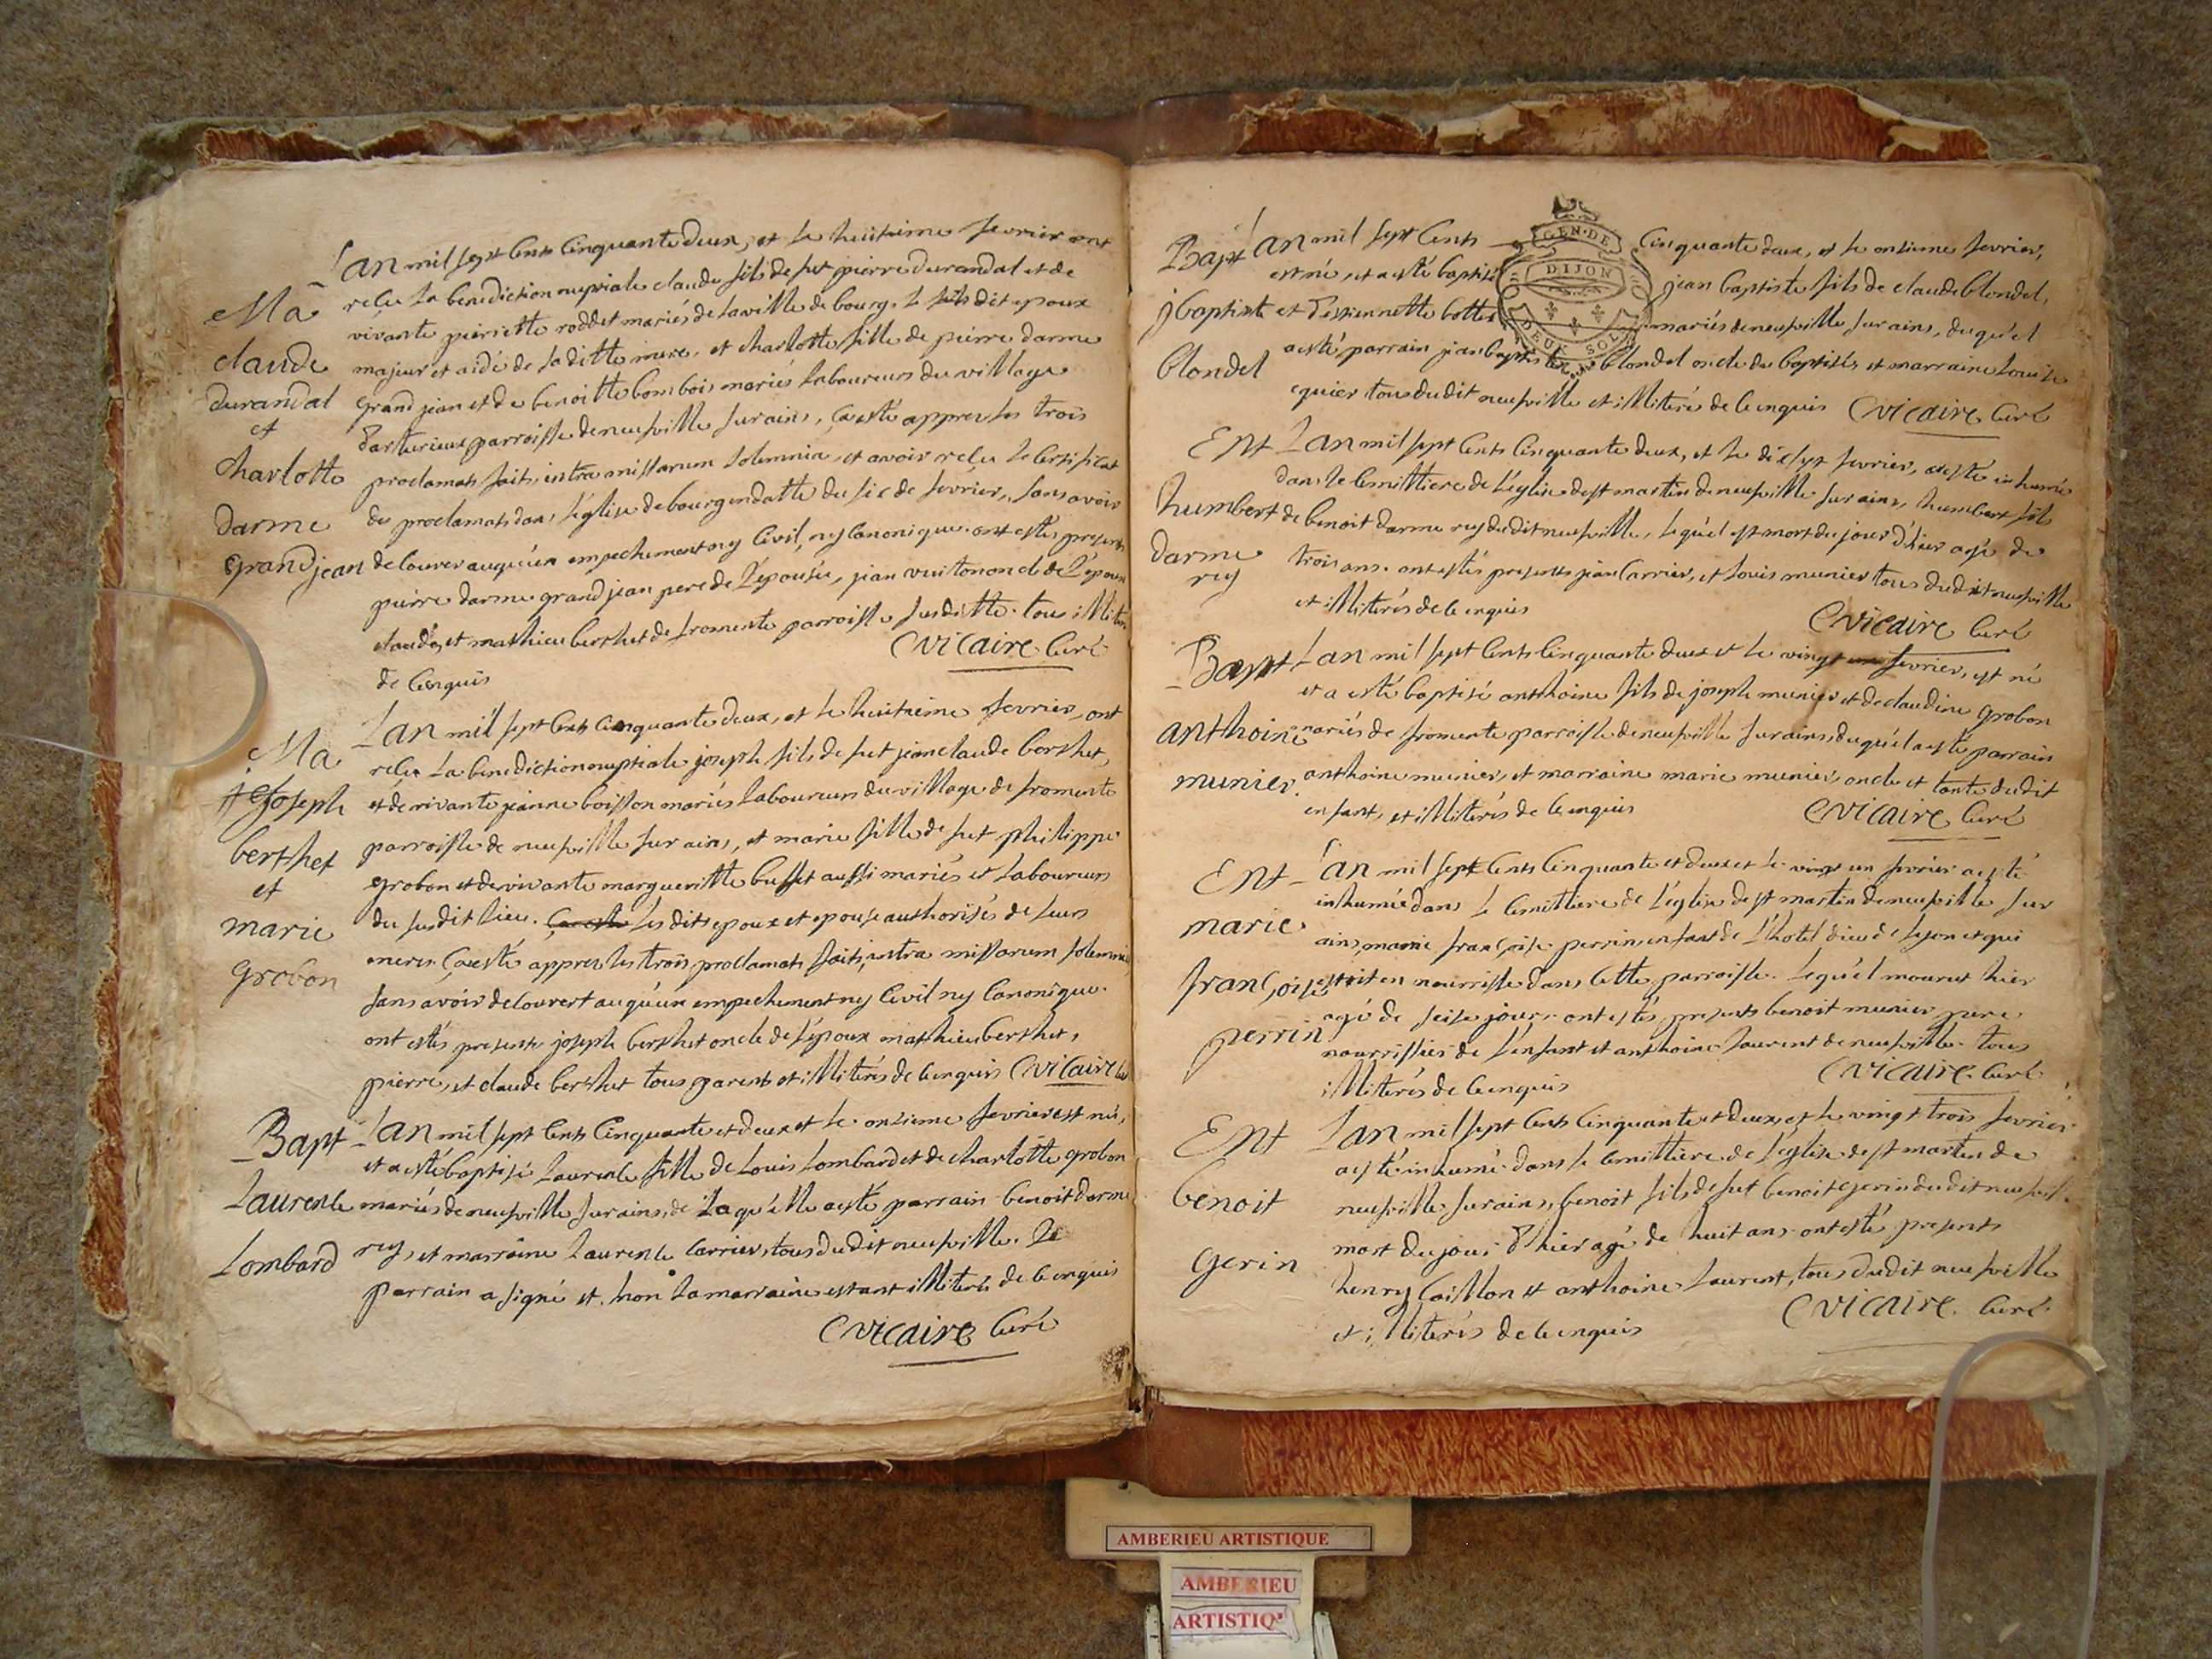 Lan mil sept Cents Cinquante deux, et le huitieme fevrier ont
Ma reçu La benediction nuptiale claude fils de fut pierre durandal et de
vivante pierrette roddet mariés de la ville de bourg. Le susdit epoux
claude majeur et aidé de sa ditte mere, et charlotte fille de pierre darme
durandal grand jean et de benoitte bombois mariés Laboureurs du village
et parroisse de neufville sur ains, ça esté appres les trois
charlotte proclamats faits intra missarum solemnia, et avoir reçu le Certificat
darme des proclamats dans l'église de bourg en datte du six de fevrier, sans avoir
grand jean decouvert auqu'un empechement ny Civil, ny Canonique. ont estés presents
pierre darme grand jean pere de l'épouse, jean oncle de l'epoux
claude, et mathieu berthet de fromente parroisse susditte. tous illiteres
de Cenquis Cvicaire Curé
Lan mil sept Cents Cinquante deux, et le huitieme fevrier, ont
Ma reçu La benediction nuptiale joseph fils de fut jean claude berthet,
joseph et de vivante jeanne boisson mariés Laboureurs du village de fromente
berthet parroisse de neufville sur ains, et marie fille de fut philippe
et grobon et de vivante margueritte buffet aussi mariés et Laboureurs
marie du susdit lieu. Les dits epoux et epouse authorisés de leurs
grobon meres. Ça esté appres les trois proclamats faits, intra missarum solemnia
sans avoir decouvert auqu'un empechement ny Civil ny Canonique.
ont estés presents joseph berthet oncle de l'époux mathieu berthet,
pierre, et claude berthet tous parents et illiterés de Cenquis Cvicaire Curé
Bapt Lan mil sept Cents Cinquante et deux et le onzieme fevrier est née,
et a esté baptisée Laurence fille de Louis Lombard et de charlotte grobon
Laurence mariés de neufville sur ains, de Laqu'elle a esté parrain benoit darme
Lombard rey, et marraine Laurence Carrier, tous dudit neufville. Le
parrain a signé et non La marraine estant illiterée de Cenquis
Cvicaire Curé
Bapt Lan mil sept Cents Cinquante deux, et le onzieme fevrier,
est né, et a esté baptisé jean baptiste fils de claude blondel,
j baptiste et d'estiennette bottex mariés de neufville sur ains, duqu'el
blondel a esté parrain jean baptiste blondel oncle du baptisé, et marraine Louise
equier tous dudit neufville et illiterés de Cenquis Cvicaire Curé
GEN. DE
DIJON
DEUX SOLS
Ent Lan mil sept Cents Cinquante deux, et le dix sept fevrier, a esté inhumé
dans le Cemittiere de l'église de st martin de neufville sur ains, humbert fils
humbert de benoit darme rey dudit neufville, lequ'el est mort du jour d'hier agé de
darme trois ans. ont estés presents jean Carrier, et Louis munier tous dudit neufville
rey et illiterés de Cenquis
Cvicaire Curé
Bapt Lan mil sept Cents Cinquante deux et le vingt fevrier, est né
et a esté baptisé anthoine fils de joseph munier et de claudine grobon
anthoine mariés de fromente parroisse de neufville sur ains, duqu'el a esté parrain
munier anthoine munier, et marraine marie munier, oncle et tante dudit
enfant, et illiterés de Cenquis Cvicaire Curé
Ent Lan mil sept Cents Cinquante et deux et le vingt un fevrier a esté
inhumée dans le Cemittiere de l'église de st martin de neufville sur
marie ains, marie françoise perrin, enfant de l'hotel dieu de Lyon et qui
françoise estoit en nourrisse dans Cette parroisse. Lequ'el mourut hier
perrin agé de seise jours. ont estés presents benoit munier pere
nourrissier de l'enfant et anthoine Laurent de neufville. tous
illiterés de Cenquis Cvicaire Curé
Ent Lan mil sept Cents Cinquante et deux, et le vingt trois fevrier
a esté inhumé dans le Cemittiere de l'église de st martin de
benoit neufville sur ains, benoit fils de fut benoit gerin dudit neufville
gerin mort du jour d'hier agé de huit ans. ont esté presents
henry Caillon et anthoine Laurent, tous dudit neufville
et illiterés de Cenquis Cvicaire Curé
AMBERIEU ARTISTIQUE
AMBERIEU
ARTISTIQ